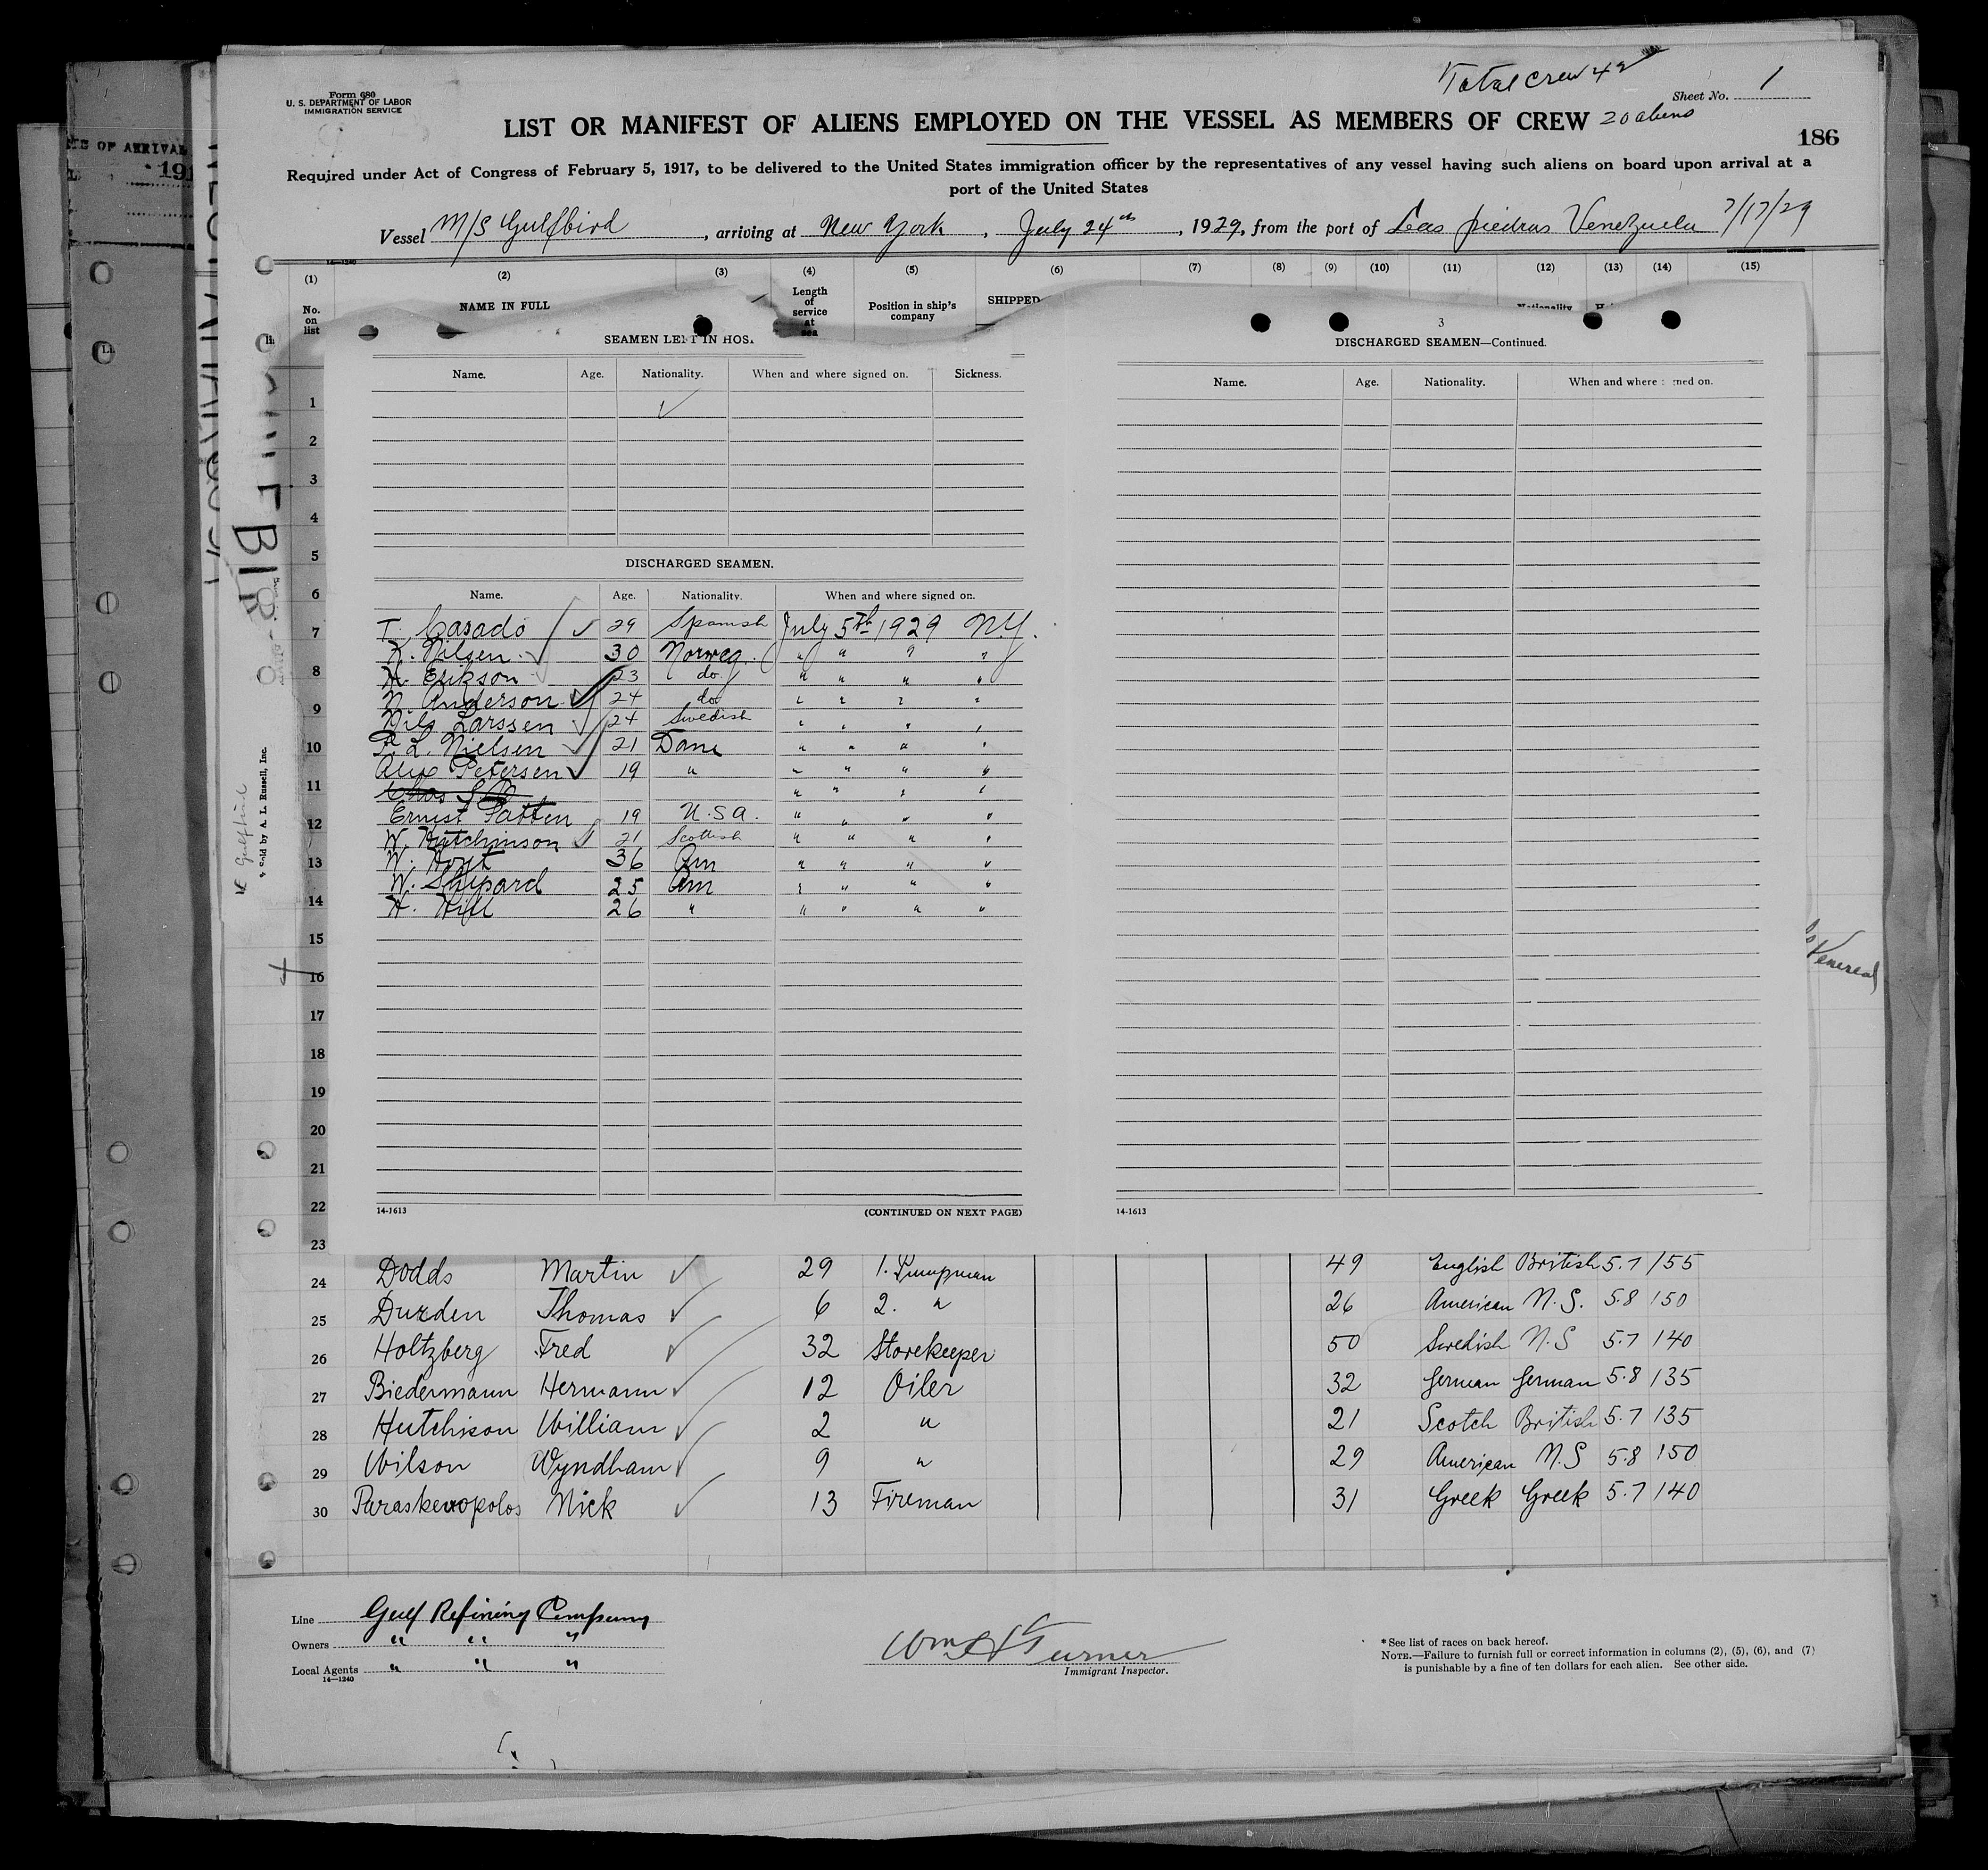 Form 680
U. S. DEPARTMENT OF LABOR
IMMIGRATION SERVICE
Total crew 42
Sheet No. 1
LIST OR MANIFEST OF ALIENS EMPLOYED ON THE VESSEL AS MEMBERS OF CREW 20 aliens
186
Required under Act of Congress of February 5, 1917, to be delivered to the United States immigration officer by the representatives of any vessel having such aliens on board upon arrival at a
port of the United States
Vessel M/S Gulfbird, arriving at New York, July 24th, 1929, from the port of Las Piedras Venezuela 7/17/29
14-1240
(1) (2) (3) (4) (5) (6) (7) (8) (9) (10) (11) (12) (13) (14) (15)
No. on list NAME IN FULL Length of service at sea Position in ship's company SHIPPED Nationality
SEAMEN LEFT IN HOS
Name. Age. Nationality. When and where signed on. Sickness.
3
DISCHARGED SEAMEN—Continued.
Name. Age. Nationality. When and where signed on.
DISCHARGED SEAMEN.
Name. Age. Nationality. When and where signed on.
T. Casado 29 Spanish July 5th 1929 N.Y.
K. Nilsen 30 Norweg. " " " "
H. Erikson 23 do " " " "
N. Anderson 24 do " " " "
Nils Larssen 24 Swedish " " " "
P. L. Nielsen 21 Dane " " " "
Alix Petersen 19 " " " " "
Chas " " " "
Ernest Patten 19 U.S.A. " " " "
W. Hutchinson 21 Scottish " " " "
W. Hoyt 36 Am " " " "
W. Shepard 25 Am " " " "
H. Hill 26 " " " " "
14-1613 (CONTINUED ON NEXT PAGE)
14-1613
1
2
3
4
5
6
7
8
9
10
11
12
13
14
15
16
17
18
19
20
21
22
23
24 Dodds Martin 29 1. Pumpman 49 English British 5.7 155
25 Durden Thomas 6 2. " 26 American N.S. 5.8 150
26 Holtzberg Fred 32 Storekeeper 50 Swedish N.S 5.7 140
27 Biedermann Hermann 12 Oiler 32 German German 5.8 135
28 Hutchison William 2 " 21 Scotch British 5.7 135
29 Wilson Wyndham 9 " 29 American N.S 5.8 150
30 Paraskevopolos Nick 13 Fireman 31 Greek Greek 5.7 140
Venereal
Sold by A. L. Russell, Inc.
Gulfbird
OF ARRIVAL
191
Line Gulf Refining Company
Owners " " "
Local Agents " " "
14—1240
Wm H Turner
Immigrant Inspector.
* See list of races on back hereof.
NOTE.—Failure to furnish full or correct information in columns (2), (5), (6), and (7)
is punishable by a fine of ten dollars for each alien. See other side.